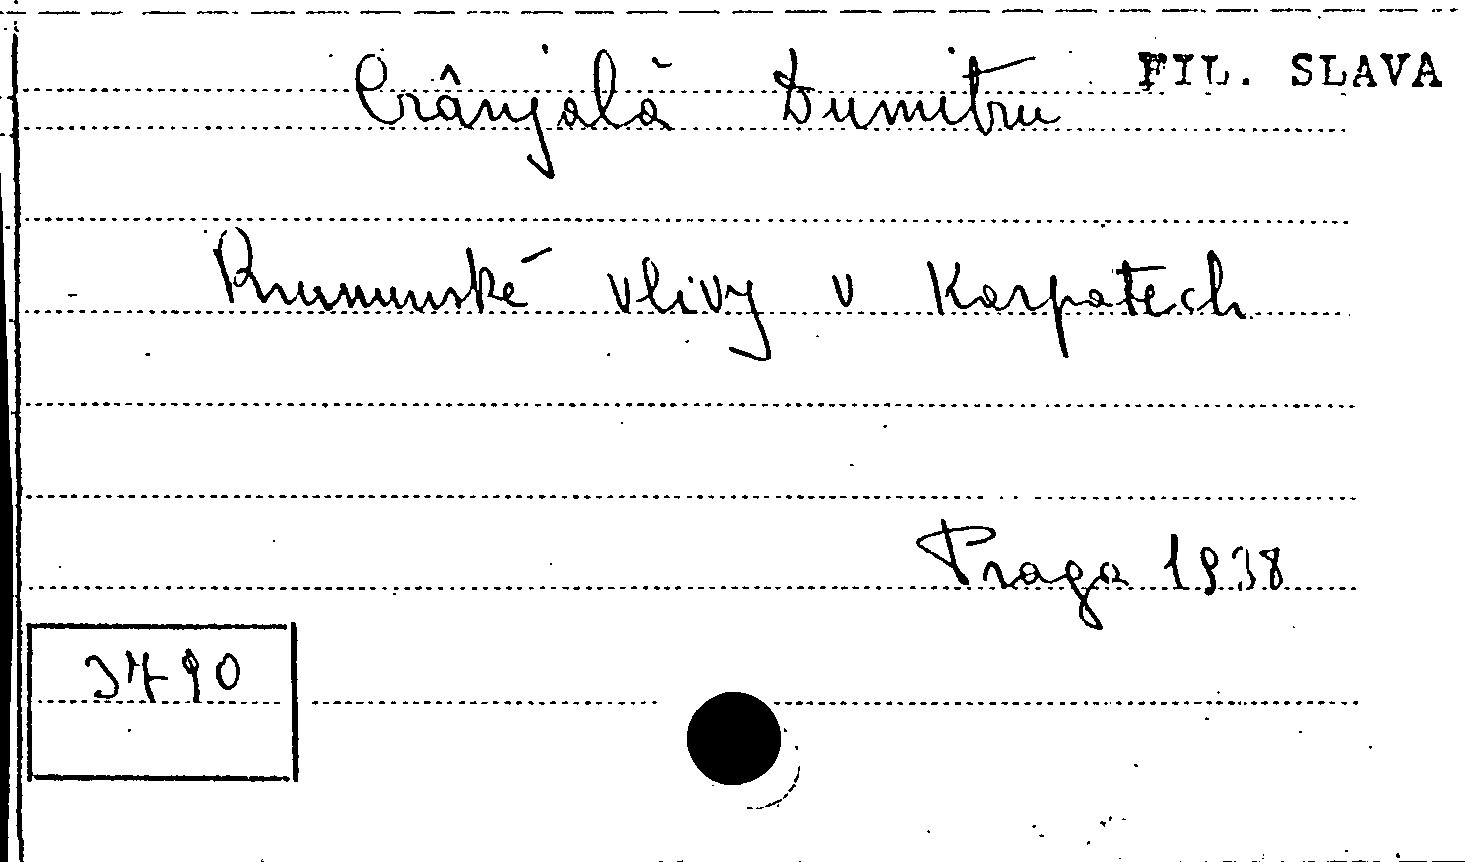 Crânjală Dumitru FIL. SLAVA
Rumunské vlivy v Karpatech
Praga 1938
3790